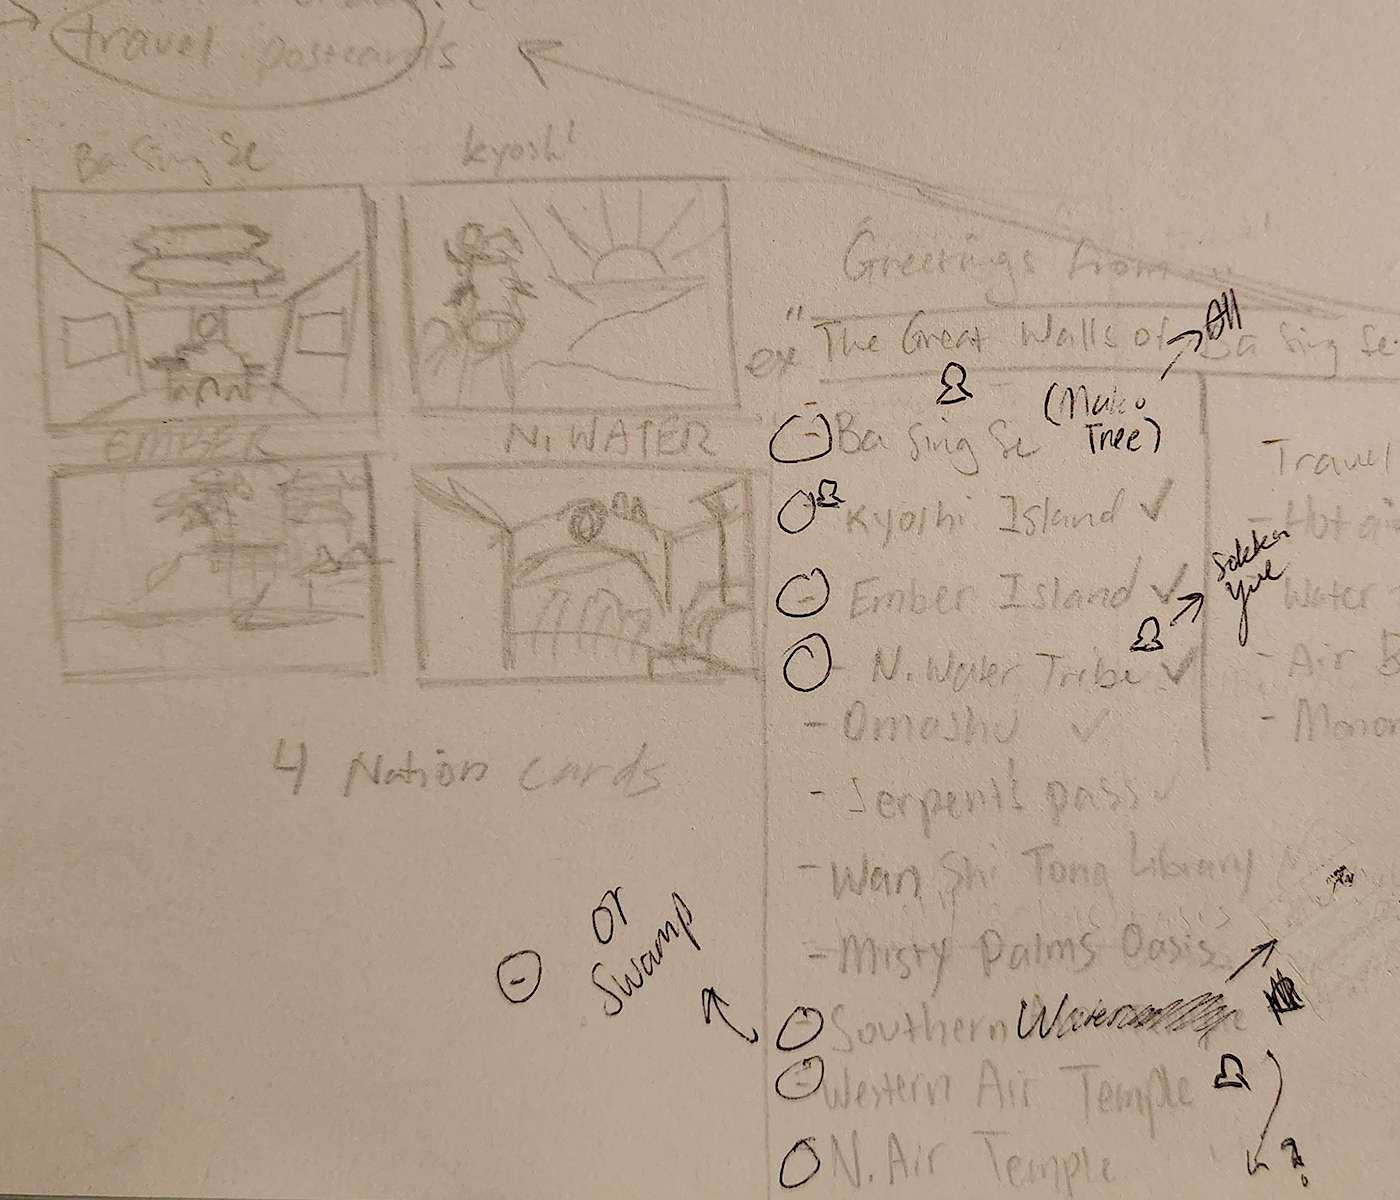 travel postcards
Ba Sing Se
Kyoshi
EMBER
N. WATER
4 Nation cards
or
Swamp
Greetings from...
ex "The Great Walls of Ba Sing Se
All
- Ba Sing Se (Mako
Tree)
Kyoshi Island ✓
- Ember Island ✓
- N. Water Tribe ✓
Sokka
Yue
- Omashu ✓
- Serpent's pass ✓
- Wan Shi Tong Library
- Misty Palms Oasis
Southern Water
- Western Air Temple
N. Air Temple
?
- Travel
- Hot ai
Water
- Air B
- Monor